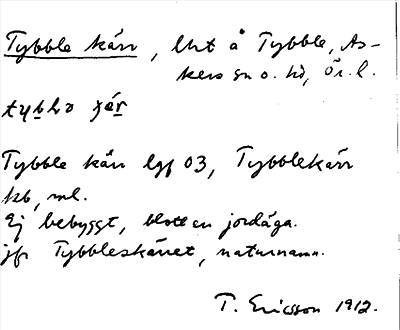 Tybble kärr, lht å Tybble, As-
kers sn o. hd, Ör. l.
Tybble kärr lgf 03, Tybblekärr
kb, ml.
Ej bebyggt, blott en jordäga.
jfr Tybbleskärret, naturnamn.
T. Ericsson 1912.